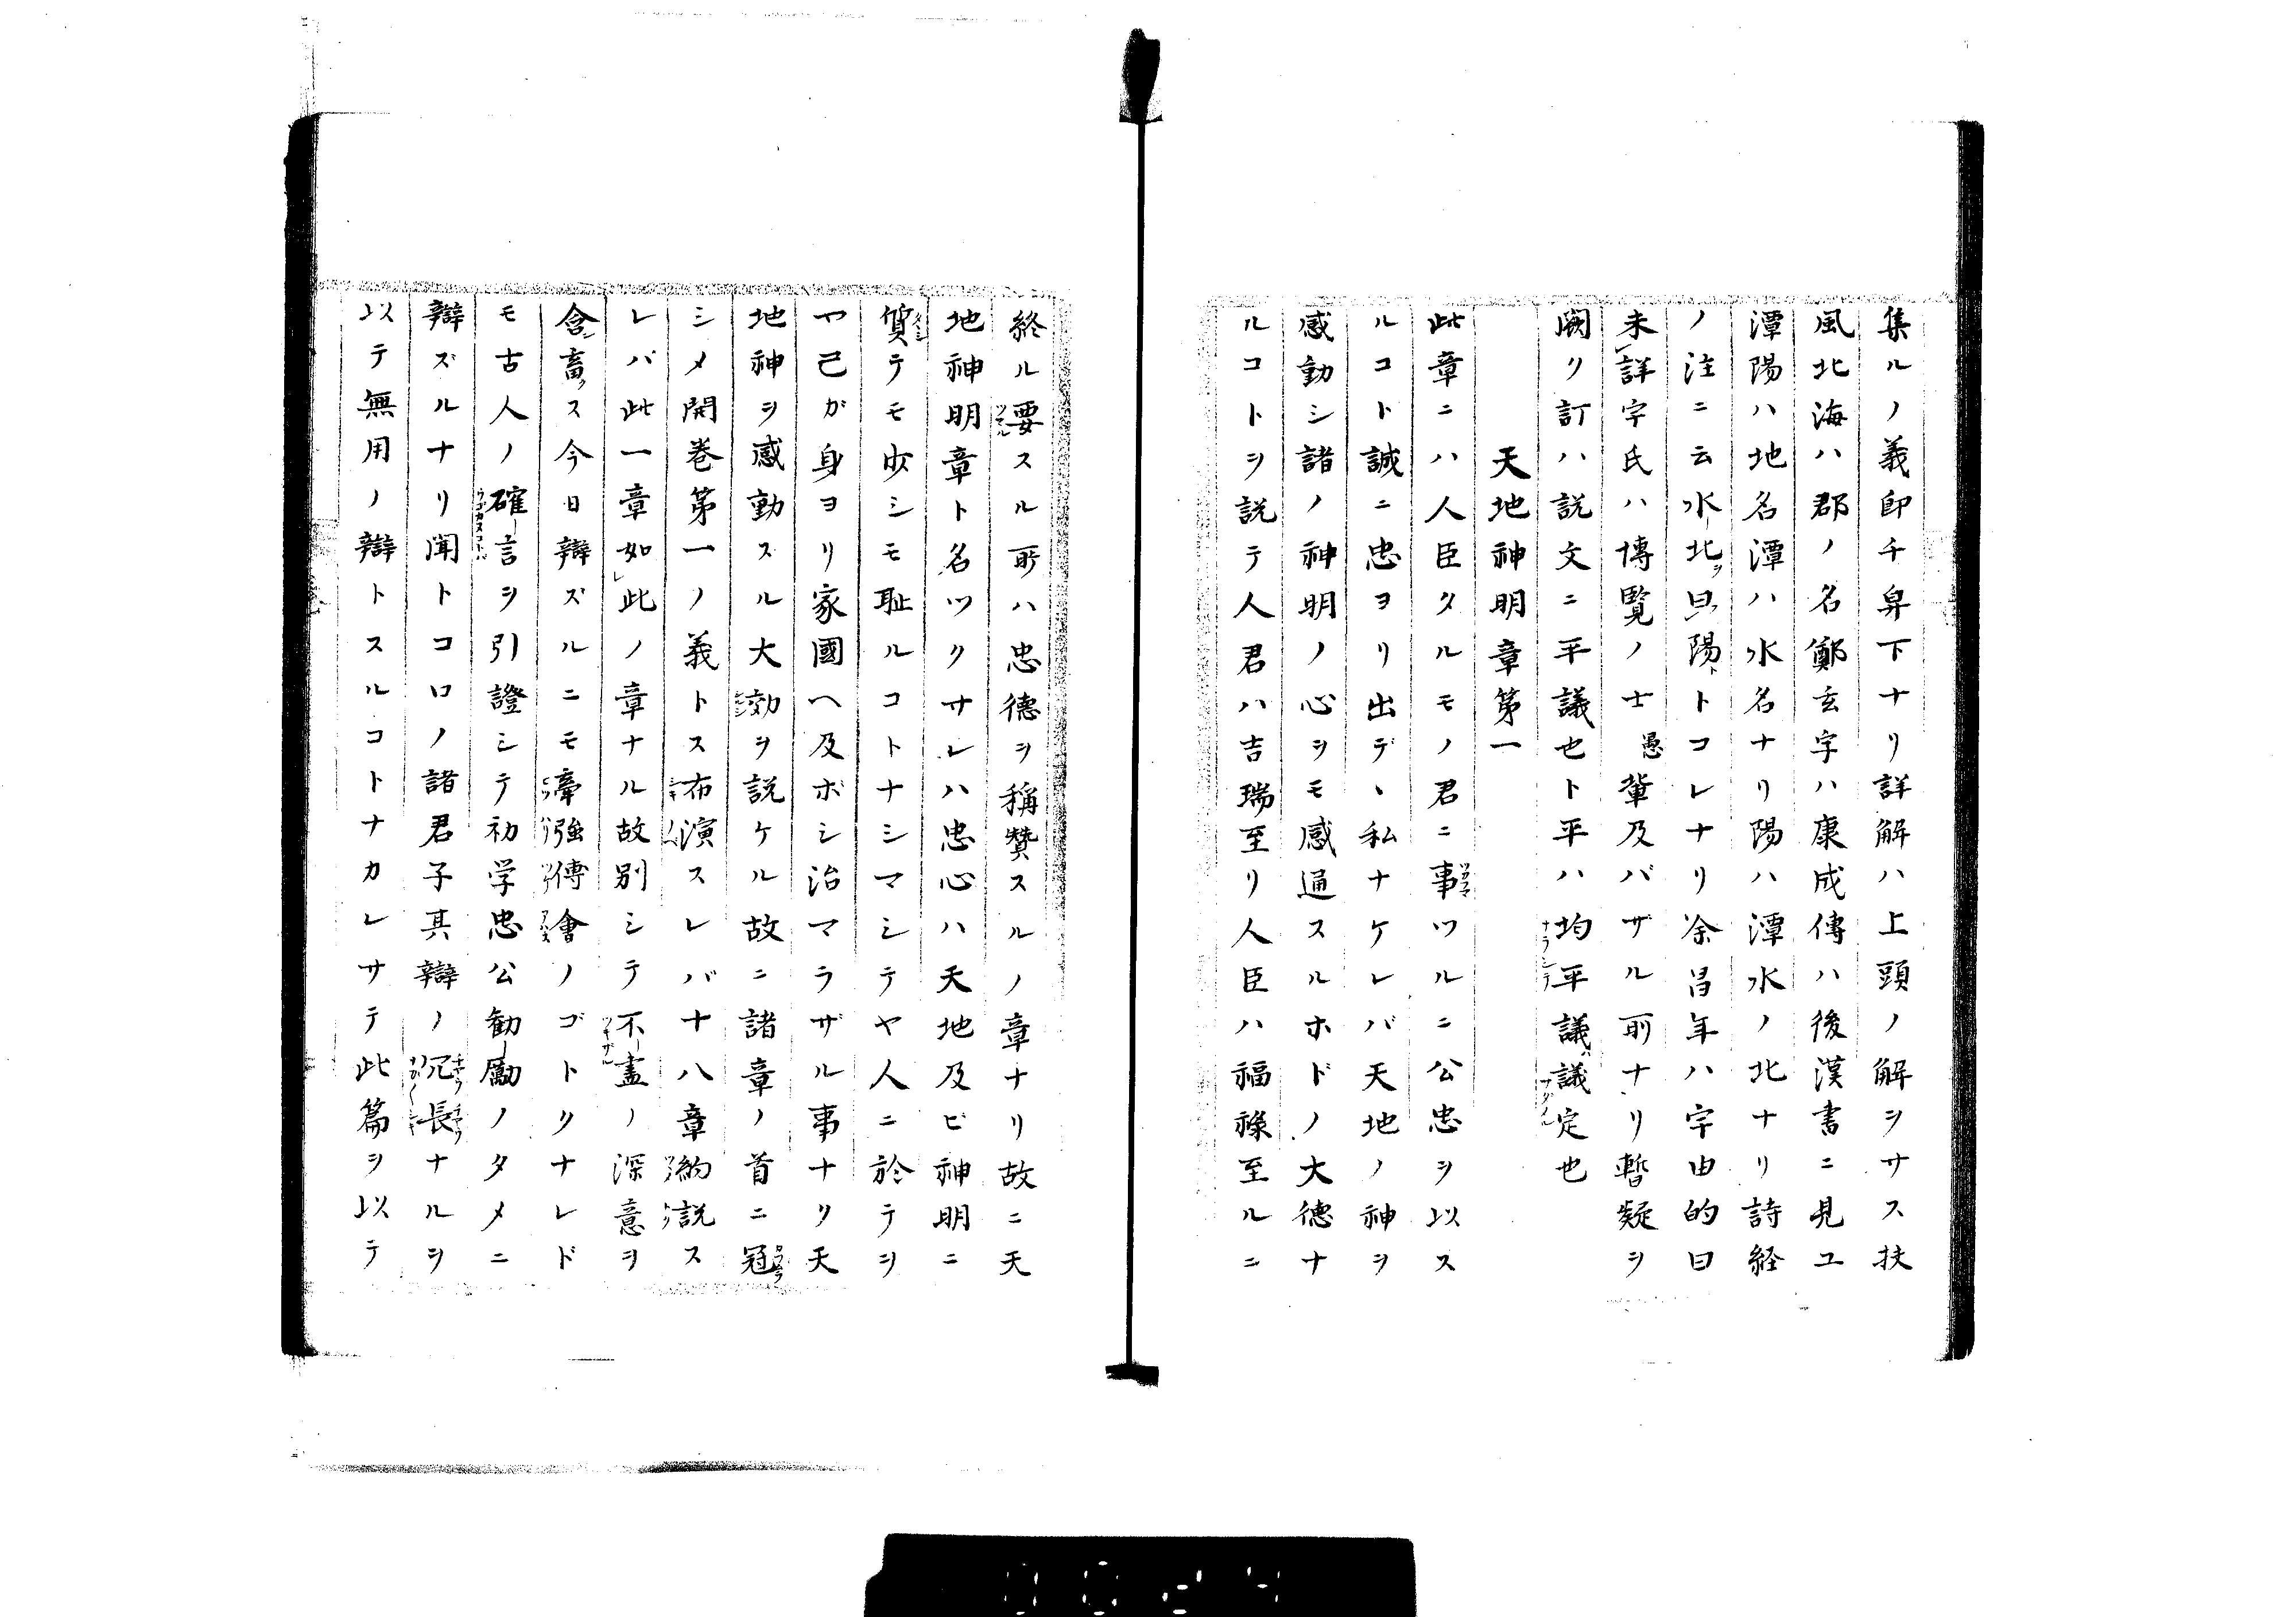 集ルノ義即チ舁下ナリ詳解ハ上頭ノ解ヲサス扶
風北海ハ郡ノ名鄭玄字ハ康成傳ハ後漢書ニ見ユ
潭陽ハ地名潭ハ水名ナリ陽ハ潭水ノ北ナリ詩経
ノ注ニ云水北ヲ曰陽トコレナリ余昌年ハ字由的曰
未詳字氏ハ博覧ノ士愚輩及バザル所ナリ暫疑ヲ
闕リ訂ハ説文ニ平議也ト平ハ均平議ハ議定也
天地神明章第一
此章ニハ人臣タルモノ君ニ事ツルニ公忠ヲ以ス
ルコト誠ニ忠ヨリ出デヽ私ナケレバ天地ノ神ヲ
感動シ諸ノ神明ノ心ヲモ感通スルホドノ大徳ナ
ルコトヲ説テ人君ハ吉瑞至リ人臣ハ福祿至ルニ
終ル要スル所ハ忠徳ヲ稱賛スルノ章ナリ故ニ天
地神明章ト名ツクサレハ忠心ハ天地及ビ神明ニ
質テモ少シモ耻ルコトナシマシテヤ人ニ於テヲ
ヤ己ガ身ヨリ家國ヘ及ボシ治マラザル事ナリ天
地神ヲ感動スル大効ヲ説ケル故ニ諸章ノ首ニ冠
シメ開巻第一ノ義トス布演スレバ十八章約説ス
レバ此一章如此ノ章ナル故別シテ不盡ノ深意ヲ
含畜ス今日辯ズルニモ牽強傅會ノゴトクナレド
モ古人ノ確言ヲ引證シテ初学忠公勧勵ノタメニ
辯ズルナリ聞トコロノ諸君子其辯ノ冗長ナルヲ
以テ無用ノ辯トスルコトナカレサテ此篇ヲ以テ